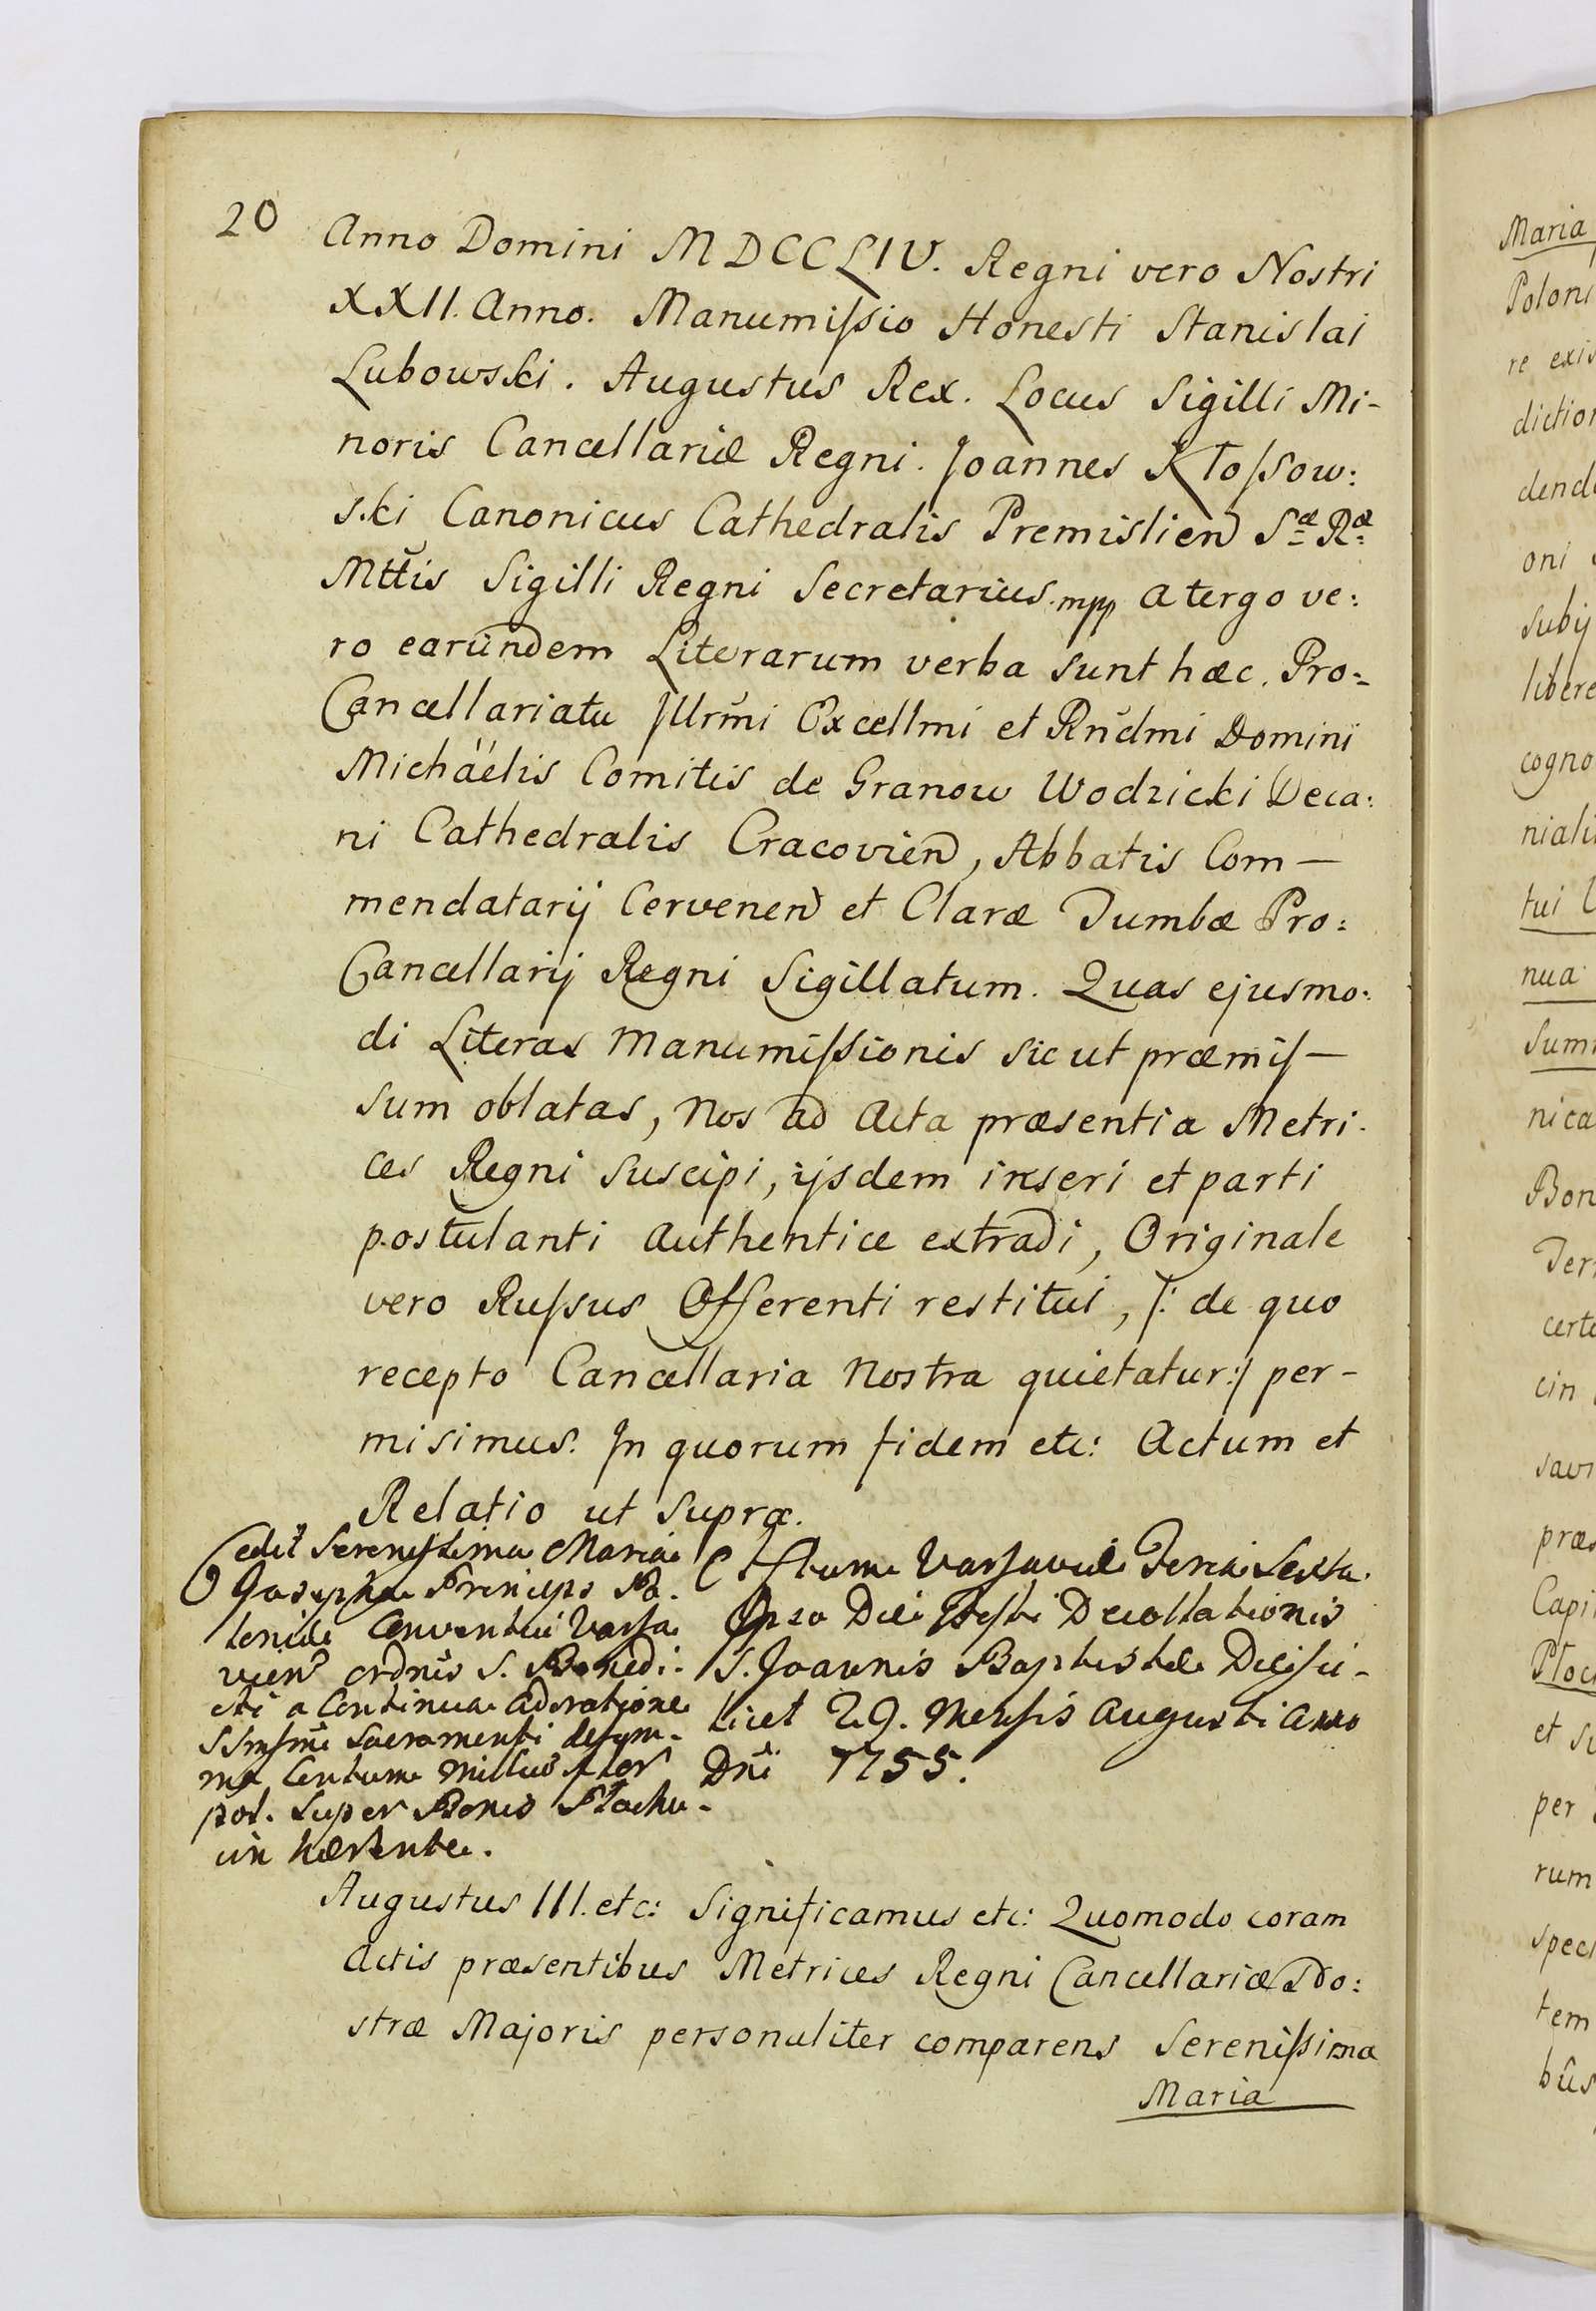 20
Anno Domini MDCCLIV. Regni vero Nostri
XXII. Anno. Manumiſsio Honesti Stanislai
Lubowski. Augustus Rex. Locus Sigilli Mi-
noris Cancellariæ Regni. Joannes Kłoſsow:
ski Canonicus Cathedralis Premislien Sæ Ræ
Mttis Sigilli Regni Secretarius. mpp A tergo ve:
ro earūndem Literarum verba sunt hæc. Pro-
Cancellariatu Jllrmi Excellmi et Rndmi Domini
Michäelis Comitis de Granow Wodzicki Deca:
ni Cathedralis Cracovien, Abbatis Com-
mendatarij Cervenen et Claræ Tumbæ Pro:
Cancellarij Regni Sigillatum. Quas ejusmo:
di Literas Manumiſsionis sicut præmiſ-
sum oblatas, Nos ad Acta præsentia Metri-
ces Regni suscipi, ijsdem inseri et parti
postulanti authentice extradi, Originale
vero Ruſsus Offerenti restitui, /: de quo
recepto Cancellaria Nostra quietatur :/ per-
misimus. In quorum fidem etc: Actum et
Relatio ut supra.
Cedit Sereniſsima Maria
Josepha Princeps Po-
loniæ Conventui Varſa
vien ordnis S. Benedi-
cti a Continua Adoratione
SSmi Sacramenti de sum-
ma Centum Millib flor
pol. super Bonis Płochu-
cin hærente.
Actum Varſaviæ Feria Sexta
Ipso Die Feſti Decollationis
S. Joannis Baptistæ Die ſci-
licet 29. Menſis Augusti Anno
Dni 1755.
Augustus III. etc: Significamus etc: Quomodo coram
Actis præsentibus Metrices Regni Cancellariæ No:
stræ Majoris personaliter comparens Sereniſsima
Maria
Maria
Poloni
re exis
diction
dend
oni
subij
libere
cogno
niali
tui
nua
Sum
nica
Bon
Ter
certe
cin
savi
præs
Capi
Płoc
et su
per
rum
spec
tem
bûs